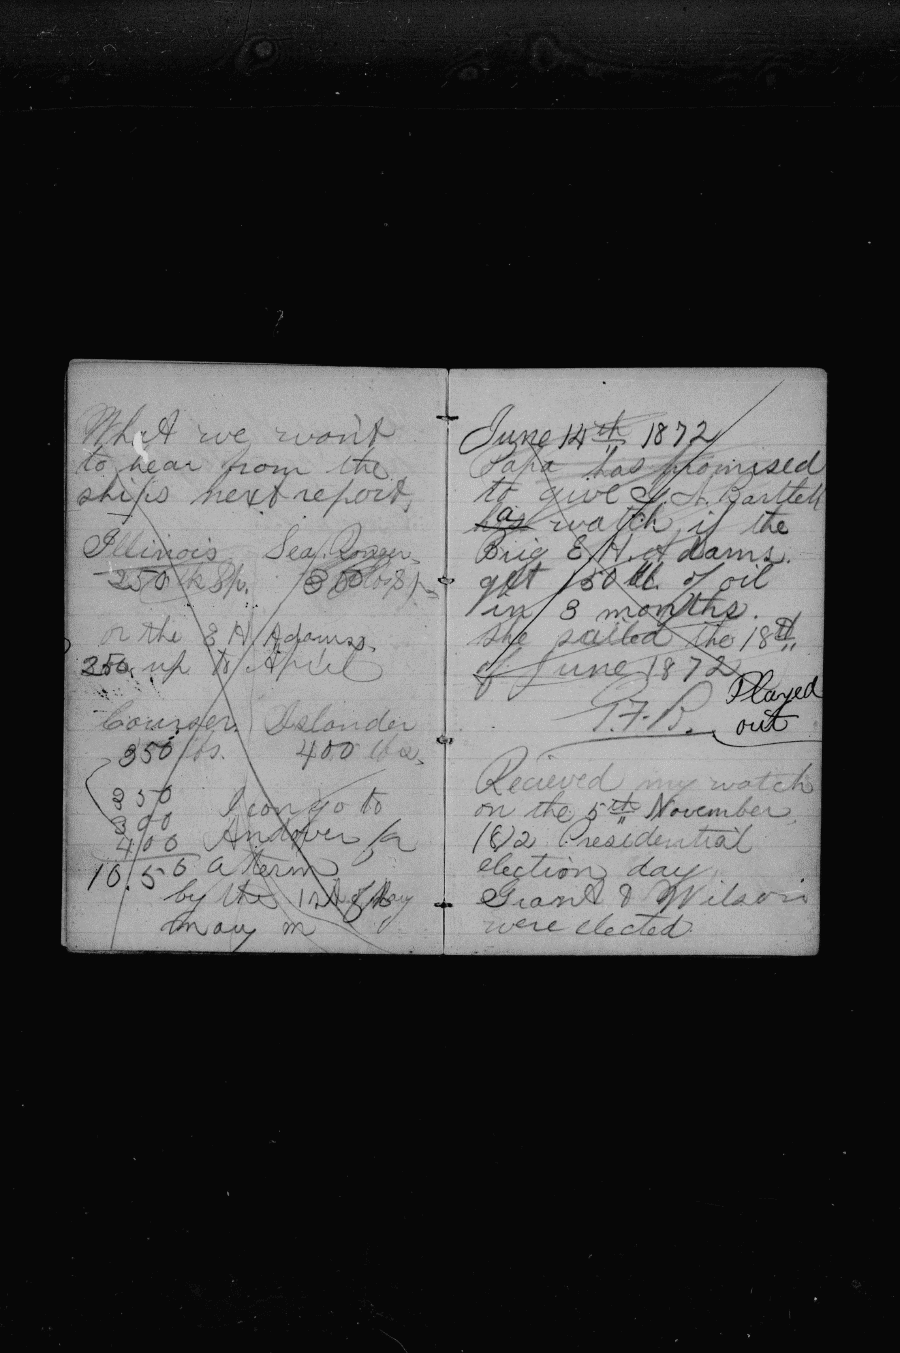 What we want
to hear from the
ships next report,
Illinois Sea Ranger
250 k Sp. 300 bbls Sp
or the E H Adams,
250, up to April
Courser. Islander
350 lbs. 400 lbs,
350
300 I can go to
400 Andover for
10.50 a term
by the 1st of
may m
June 14th 1872
Papa has promised
to give G. F. Bartlett
a watch if the
Brig E. H. Adams.
get 150 bbl. of oil
in 3 months.
she sailed the 18th
of June 1872
G. F. B. Played
out
Recieved my watch
on the 5th November,
1872 Presidential
election day
Grant & Wilson
were elected